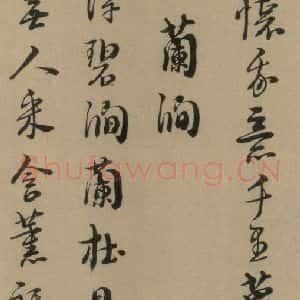 懷意千里
蘭澗
浮碧澗蘭杜日
無人采含薰祇
Shufawang.CN